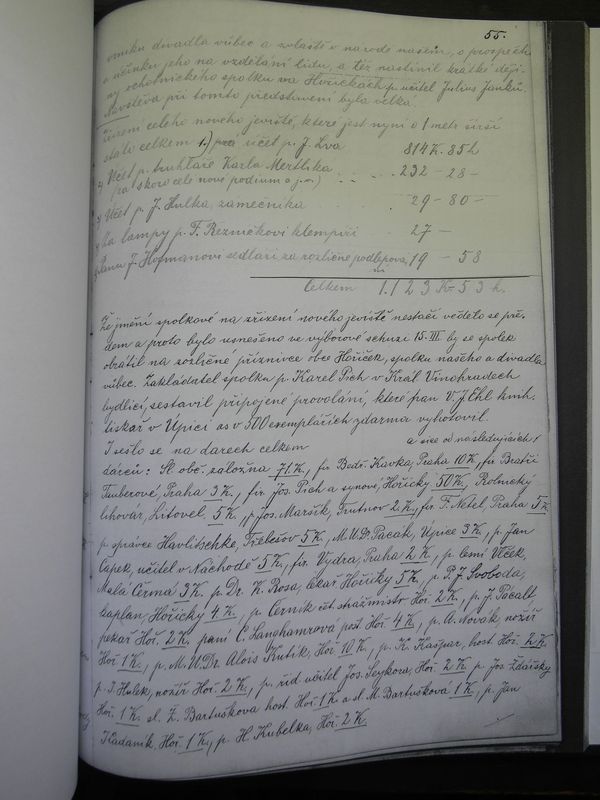 55.
vzniku divadla vůbec a zvláště v národě našem, o prospěch
a účinku jeho na vzdělání lidu, a též nastínil krátké ději-
ny ochotnického spolku va Hořičkách p. učitel Julius Janků.
Návštěva při tomto představení byla velká.
Zřízení celého nového jeviště, které jest nyní o 1 metr širší
stálo celkem 1.) účet p. J. Lva 814 K. 85 h
2) Účet p. truhláře Karla Mertlíka . . . . 232 – 28 –
(za skoro celé nové podium a j. v.)
3) Účet p. J. Hulka, zámečníka 29 – 80 –
Za lampy p. F. Řezníčkovi klempíři . . 27 –
Panu J. Hofmanovi sedláři za rozličné podlepová. 19 – 58
Celkem 1.123 K – 53 h.
Ze jmění spolkové na zřízení nového jeviště nestačí vědělo se pře-
dem a proto bylo usnešeno ve výborové schůzi 15. III. by se spolek
obrátil na rozličné příznivce obce Hořiček, spolku našeho a divadla
vůbec. Zakladatel spolku p. Karel Pich v Král. Vinohradech
bydlící, sestavil připojené provolání, které pan V. J. Ehl knih-
tiskař v Úpici as v 500 exemplářích zdarma vyhotovil.
I sešlo se na darech celkem a sice od následujících
dárců: Sl. obč. záložna 71 K., fir. Bedř. Kavka, Praha 10 K., fir. Bratří
Tauberové, Praha 3 K., fir. Jos. Pich a synové, Hořičky 50 K., Rolnický
lihovar, Litovel 5 K., p. Jos. Maršík, Trutnov 2 K., fir. F. Netel, Praha 5 K.
p. správce Havlitschke, Třebešov 5 K., M.U.Dr. Pacák, Úpice 3 K., p. Jan
Čapek, učitel v Náchodě 5 K., fir. Vydra, Praha 2 K., p. Vlček,
Malá Čermá 3 K. p. Dr. K. Rosa, lékař Hořičky 5 K., p. P. J. Svoboda,
kaplan, Hořičky 4 K., p. Černík čet. strážmistr Hoř. 2 K., p. J. Pácalt
pekař Hoř. 2 K. paní C. Langhamrová pošt. Hoř. 4 K., p. A. Novák, nožíř
Hoř. 1 K., p. M.U.Dr. Alois Kutík, Hoř. 10 K., p. K. Kašpar, host. Hoř. 2 K.
p. J. Hulek, nožíř Hoř. 2 K., p. říd. učitel Jos. Seykora, Hoř. 2 K. p. Jos. Žďárský
Hoř. 1 K. sl. Z. Bartušková host. Hoř. 1 K. a sl. M. Bartušková 1 K., p. Jan
Kadaník, Hoř. 1 K., p. H. Kubelka, Hoř. 2 K.